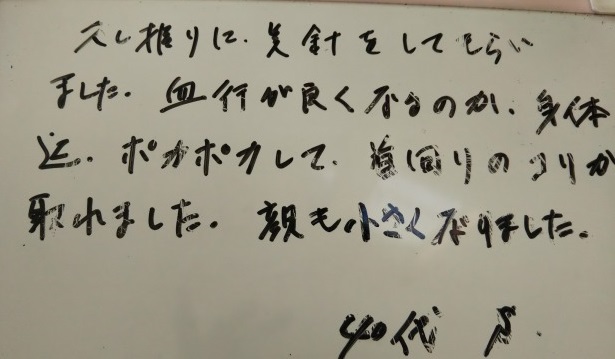 久し振りに、美針をしてもらい
ました。血行が良くなるのか、身体
迄、ポカポカして、首回りのコリが
取れました。顔も小さくなりました。
40代 S.